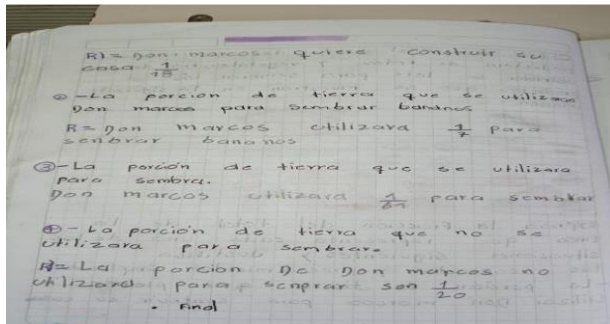 R) = Don marcos quiere construir su
casa 1/18
② - La porcion de tierra que se utilizaran
Don marcos para sembrar bananos
R = Don marcos utilizara 1/7 para
senbrar bananos
③ - La porción de tierra que se utilizara
para sembrar.
Don marcos utilizara para sembrar
④ - La porcion de tierra que no se
utilizara para sembrar.
R = La porcion De Don marcos no
utilizara para senprar son 1/20
• Final